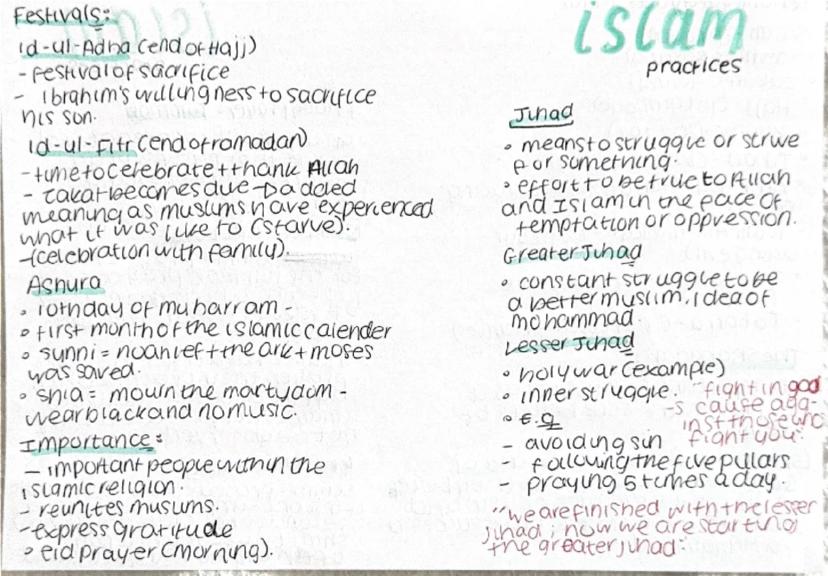 Festivals:
id-ul-Adha (end of Hajj)
- festival of sacrifice
- Ibrahim's willingness to sacrifice
his son.
id-ul-Fitr (end of ramadan)
- time to celebrate + thank Allah
- zakat becomes due → added
meaning as muslims have experienced
what it was like to (starve).
- (celebration with family).
Ashura
• 10th day of muharram.
• first month of the islamic calender
• sunni = noah left + the ark + moses
was saved.
• shia = mourn the martydom -
wear black and no music.
Importance:
- important people within the
islamic religion.
- reunites muslims.
- express gratitude
• eid prayer (morning).
islam
practices
Jihad
• means to struggle or strive
for something.
• effort to be true to Allah
and Islam in the face of
temptation or oppression.
Greater Jihad
• constant struggle to be
a better muslim. idea of
mohammad.
Lesser Jihad
• holy war (example)
• inner struggle.
• E.g
- avoiding sin
- following the five pillars
- praying 5 times a day.
"fight in god
s cause aga-
inst those who
fight you"
"we are finished with the lesser
jihad; now we are starting
the greater jihad"